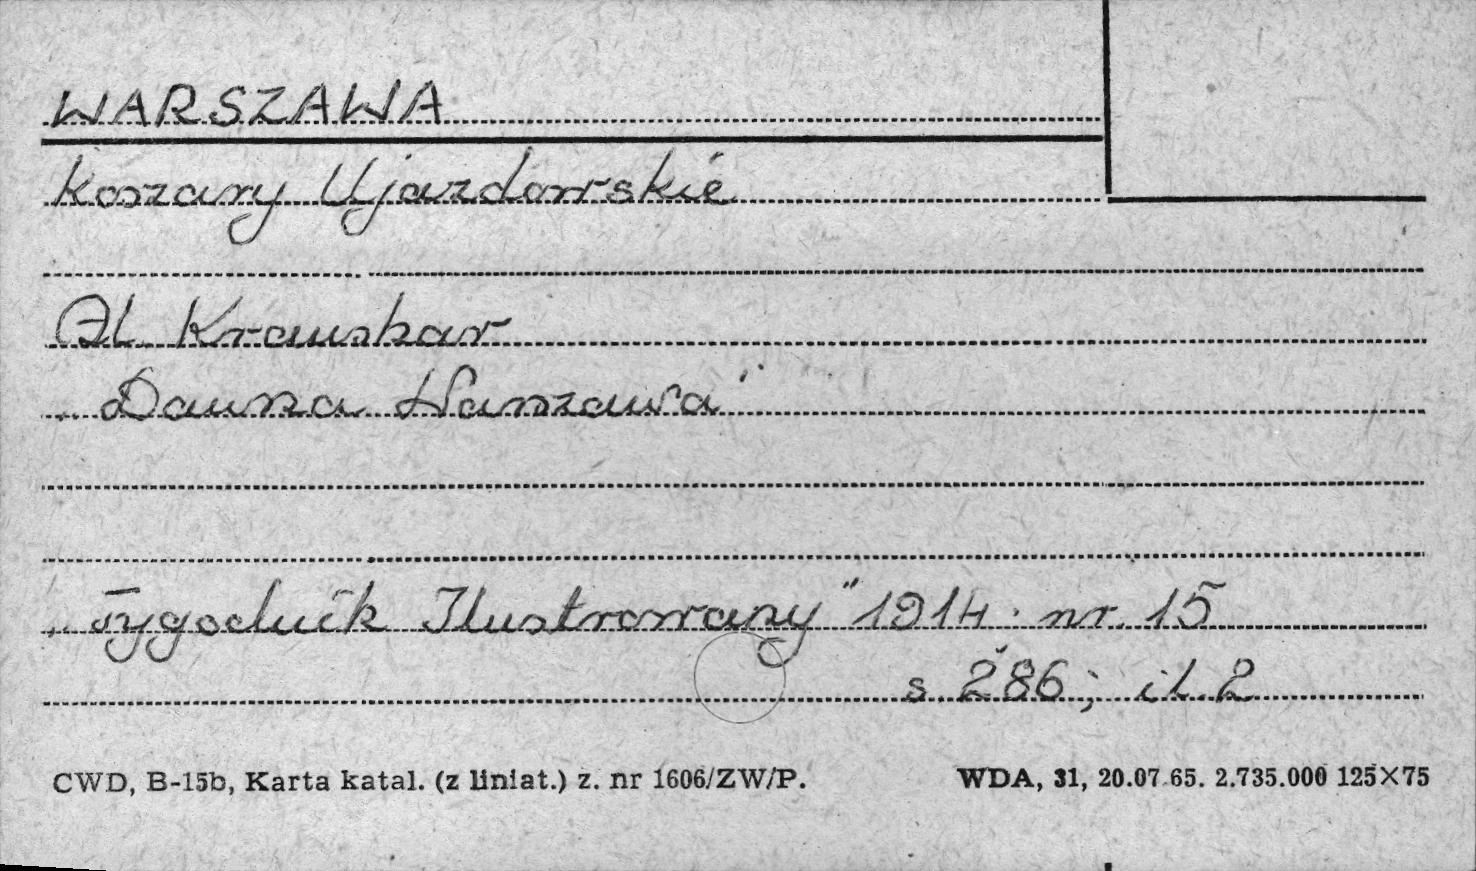 WARSZAWA
Koszary Ujazdowskie
Al. Kraushar
„Dawna Warszawa”
„Tygodnik Ilustrowany” 1914. nr. 15
s. 286; il. 2
CWD, B-15b, Karta katal. (z liniat.) z. nr 1606/ZW/P.
WDA, 31, 20.07.65. 2.735.000 125×75